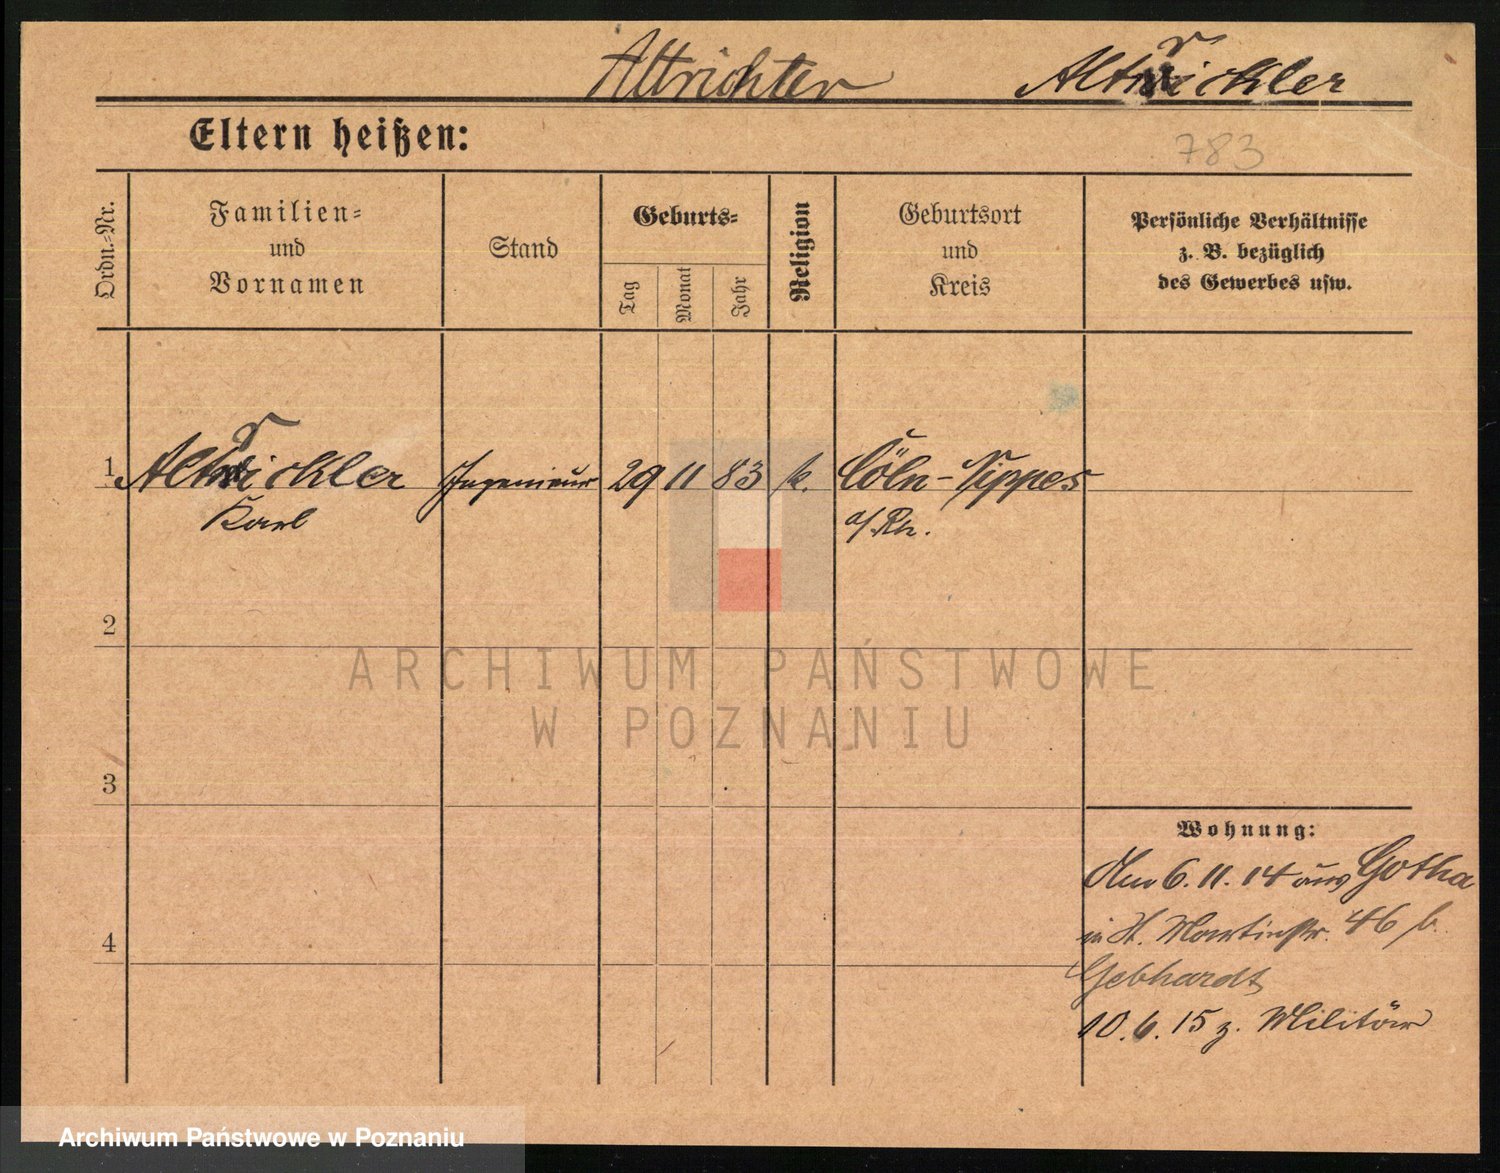 Altrichter Altrickler
Eltern heißen:
783
Ordn.-Nr.
Familien-
und
Vornamen
Stand
Geburts-
Tag
Monat
Jahr
Religion
Geburtsort
und
Kreis
Persönliche Verhältnisse
z. B. bezüglich
des Gewerbes usw.
1 Altrickler Ingenieur 29 11 83 k. Cöln-Nippes
Karl a/Rh.
2
ARCHIWUM PAŃSTWOWE
W POZNANIU
3
Wohnung:
Am 6.11.14 aus Gotha
in St. Martinstr. 46 b.
4
Gebhardt
10.6.15 z. Militär
Archiwum Państwowe w Poznaniu